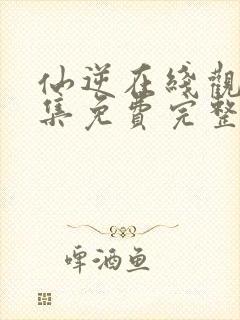 仙逆在綫觀
集免費完整
啤酒鱼